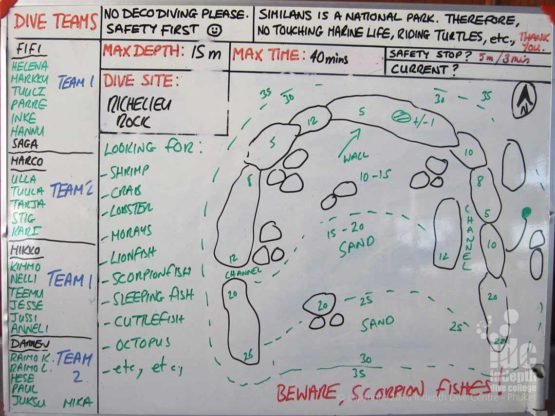 DIVE TEAMS
FIFI
HELENA
MARKKU
TUULI
PARRE
INKE
HANNU
SAGA
TEAM 1
MARCO
ULLA
TUULA
TARJA
STIG
KARI
TEAM 2
MIKKO
KIMMO
NELLI
TEEMU
JESSE
JUSSI
ANNELI
TEAM 1
DAMIEN
RAIMO K.
RAIMO L.
HESE
PAUL
JUKSU
MIKA
TEAM 2
NO DECO DIVING PLEASE.
SAFETY FIRST
SIMILANS IS A NATIONAL PARK. THEREFORE,
NO TOUCHING MARINE LIFE, RIDING TURTLES, etc., THANK YOU.
MAX DEPTH: 15m
MAX TIME: 40mins
SAFETY STOP? 5m/3min
CURRENT?
DIVE SITE:
RICHELIEU
ROCK
LOOKING FOR:
-SHRIMP
-CRAB
-LOBSTER
-MORAYS
-LIONFISH
-SCORPIONFISH
-SLEEPING FISH
-CUTTLEFISH
-OCTOPUS
-etc, etc,
35
30
30
35
N
5
12
5
+/-1
10
WALL
10-15
8
8
5
15-20
SAND
12
CHANNEL
12
CHANNEL
10
20
20
25
20
SAND
25
25
30
35
BEWARE, SCORPION FISHES
indepth
dive college